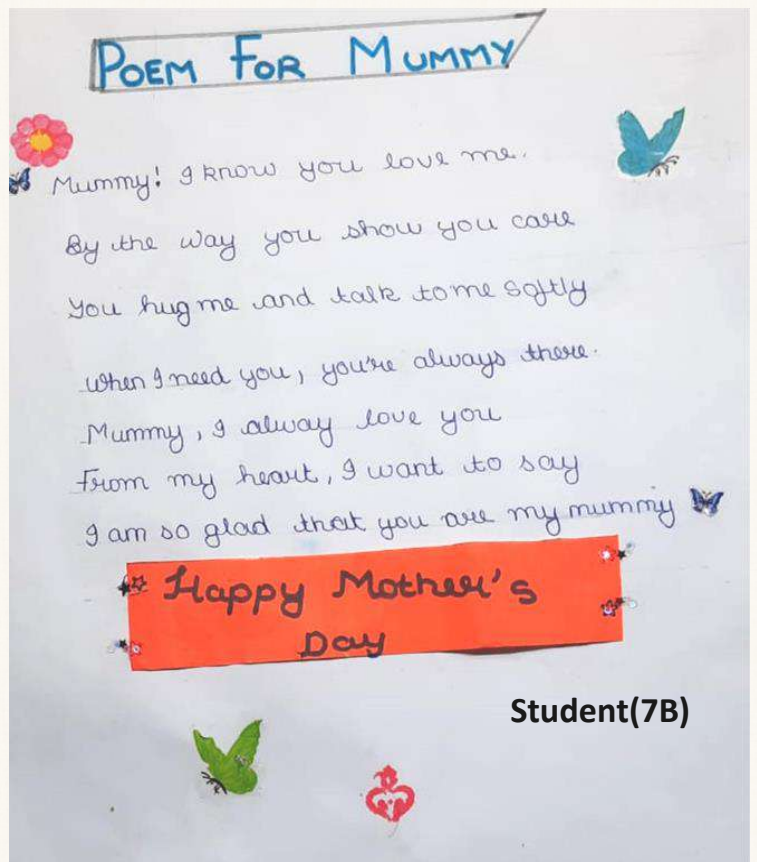 POEM FOR MUMMY
Mummy! I know you love me.
By the way you show you care
You hug me and talk to me softly
When I need you, you're always there.
Mummy, I alway love you
From my heart, I want to say
I am so glad that you are my mummy
Happy Mother's
Day
Student(7B)